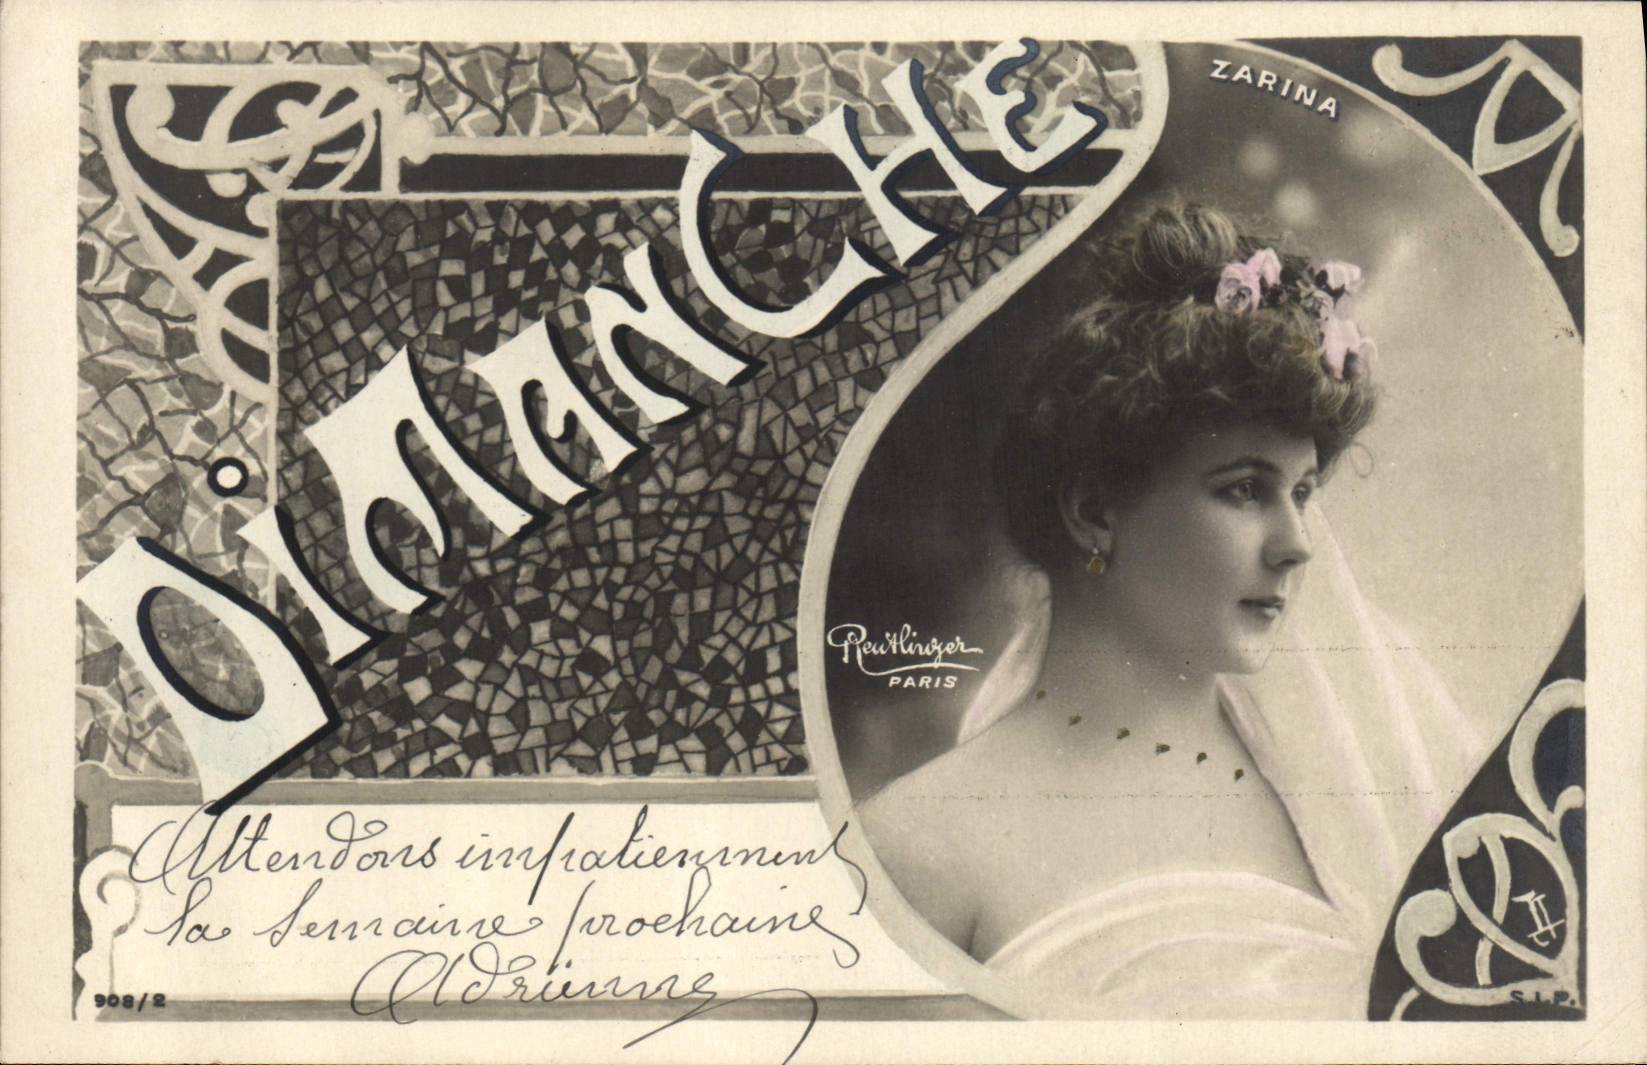 DIMANCHE
ZARINA
Reutlinger
PARIS
Attendons impatiemment
la semaine prochaine
Adrienne
908/2
S.I.P.